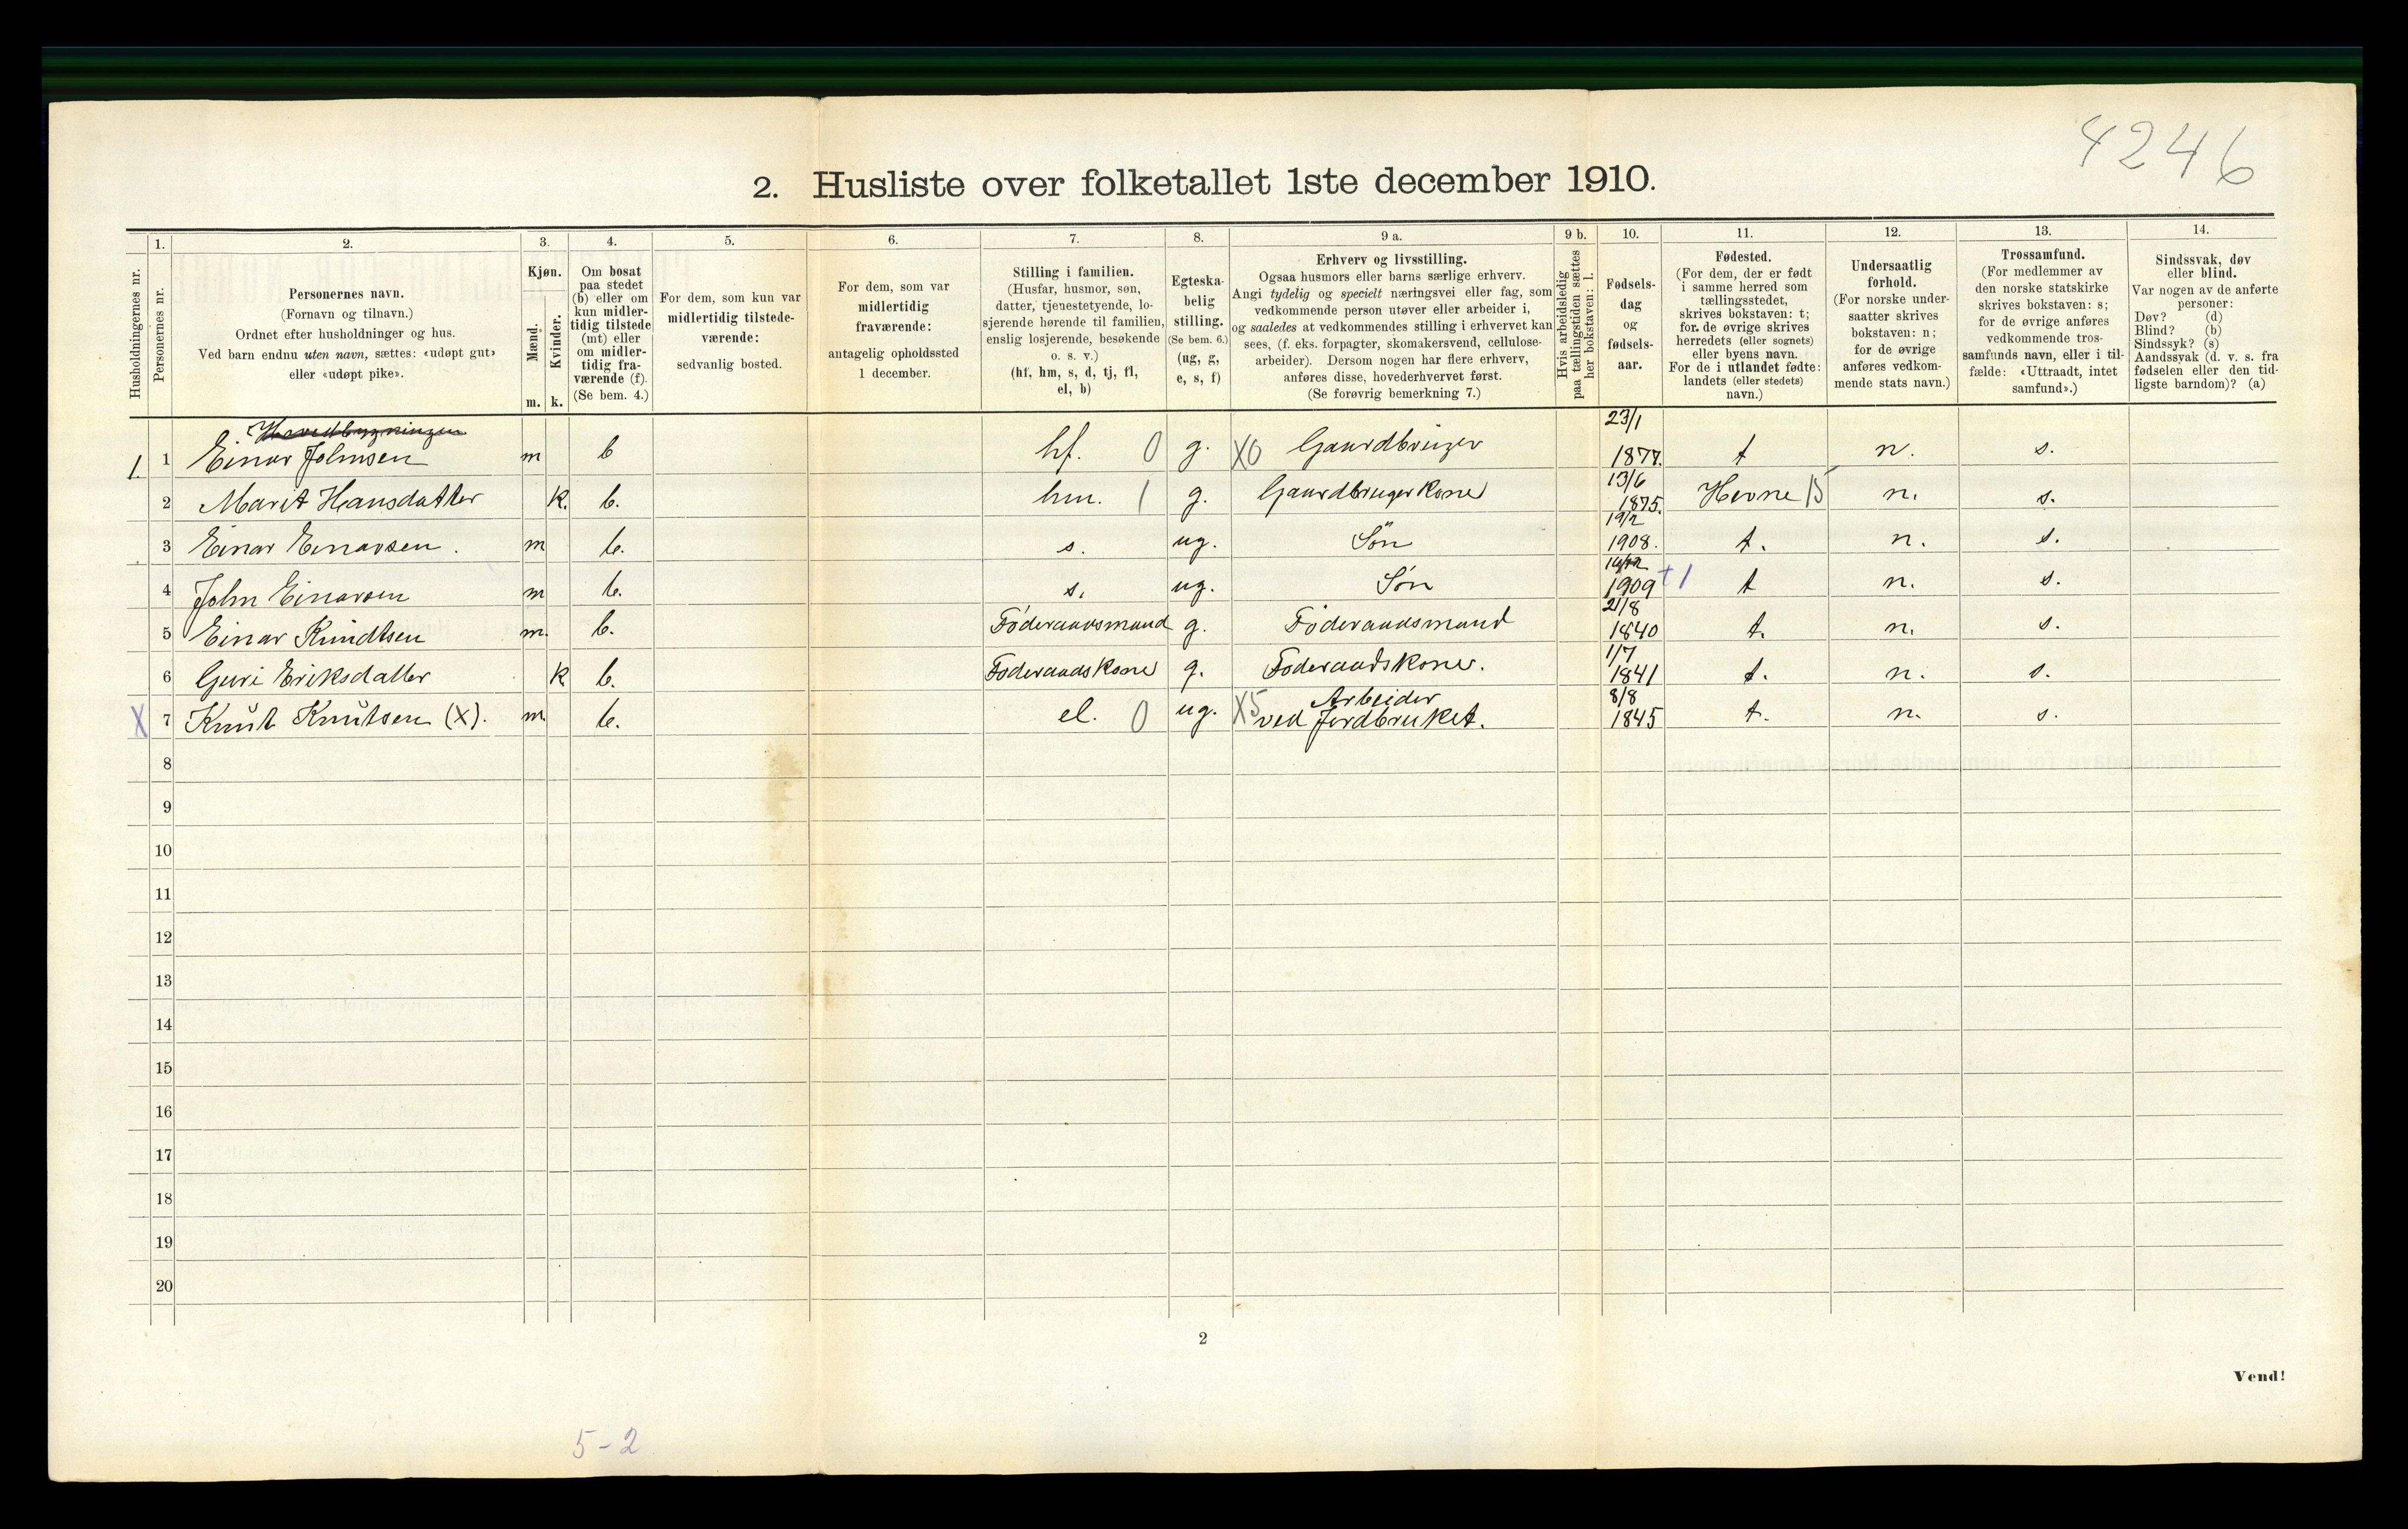 4246
2. Husliste over folketallet 1ste december 1910.
Husholdningernes nr.
1.
Personernes nr.
2.
Personernes navn.
(Fornavn og tilnavn.)
Ordnet efter husholdninger og hus.
Ved barn endnu uten navn, sættes: «udøpt gut»
eller «udøpt pike».
3.
Kjøn.
Mænd.
Kvinder.
m. k.
4.
Om bosat
paa stedet
(b) eller om
kun midler-
tidig tilstede
(mt) eller
om midler-
tidig fra-
værende (f).
(Se bem. 4.)
5.
For dem, som kun var
midlertidig tilstede-
værende:
sedvanlig bosted.
6.
For dem, som var
midlertidig
fraværende:
antagelig opholdssted
1 december.
7.
Stilling i familien.
(Husfar, husmor, søn,
datter, tjenestetyende, lo-
sjerende hørende til familien,
enslig losjerende, besøkende
o. s. v.)
(hf, hm, s, d, tj, fl,
el, b)
8.
Egteska-
belig
stilling.
(Se bem. 6.)
(ug, g,
e, s, f)
9 a.
Erhverv og livsstilling.
Ogsaa husmors eller barns særlige erhverv.
Angi tydelig og specielt næringsvei eller fag, som
vedkommende person utøver eller arbeider i,
og saaledes at vedkommendes stilling i erhvervet kan
sees, (f. eks. forpagter, skomakersvend, cellulose-
arbeider). Dersom nogen har flere erhverv,
anføres disse, hovederhvervet først.
(Se forøvrig bemerkning 7.)
9 b.
Hvis arbeidsledig
paa tællingstiden sættes
her bokstaven: l.
10.
Fødsels-
dag
og
fødsels-
aar.
11.
Fødested.
(For dem, der er født
i samme herred som
tællingsstedet,
skrives bokstaven: t;
for de øvrige skrives
herredets (eller sognets)
eller byens navn.
For de i utlandet fødte:
landets (eller stedets)
navn.)
12.
Undersaatlig
forhold.
(For norske under-
saatter skrives
bokstaven: n;
for de øvrige
anføres vedkom-
mende stats navn.)
13.
Trossamfund.
(For medlemmer av
den norske statskirke
skrives bokstaven: s;
for de øvrige anføres
vedkommende tros-
samfunds navn, eller i til-
fælde: «Uttraadt, intet
samfund».)
14.
Sindssvak, døv
eller blind.
Var nogen av de anførte
personer:
Døv? (d)
Blind? (b)
Sindssyk? (s)
Aandssvak (d. v. s. fra
fødselen eller den tid-
ligste barndom)? (a)
Hovedbygningen
1. 1 Einar Johnsen m b hf. 0 g. X0 Gaardbruger 23/1 1877. t n. s.
2 Marit Hansdatter k. b. hm. 1 g. Gaardbrugerkone 13/6 1875. Hevne 15 n. s.
3 Einar Einarsen. m b. s. ug. Søn 19/2 1908. t. n. s.
4 John Einarsen m b. s. ug. Søn 1909 +1 t n. s.
5 Einar Knudtsen m. b. Föderaadsmand g. Föderaadsmand 21/8 1840 t. n. s.
6 Guri Eriksdatter k b. Föderaadskone g. Foderaadskone. 1/7 1841 t. n. s.
X 7 Knut Knutsen (X). m b. el. 0 ug. X5 Arbeider ved Jordbruket. 8/8 1845 t. n. s.
8
9
10
11
12
13
14
15
16
17
18
19
20
2
Vend!
5-2